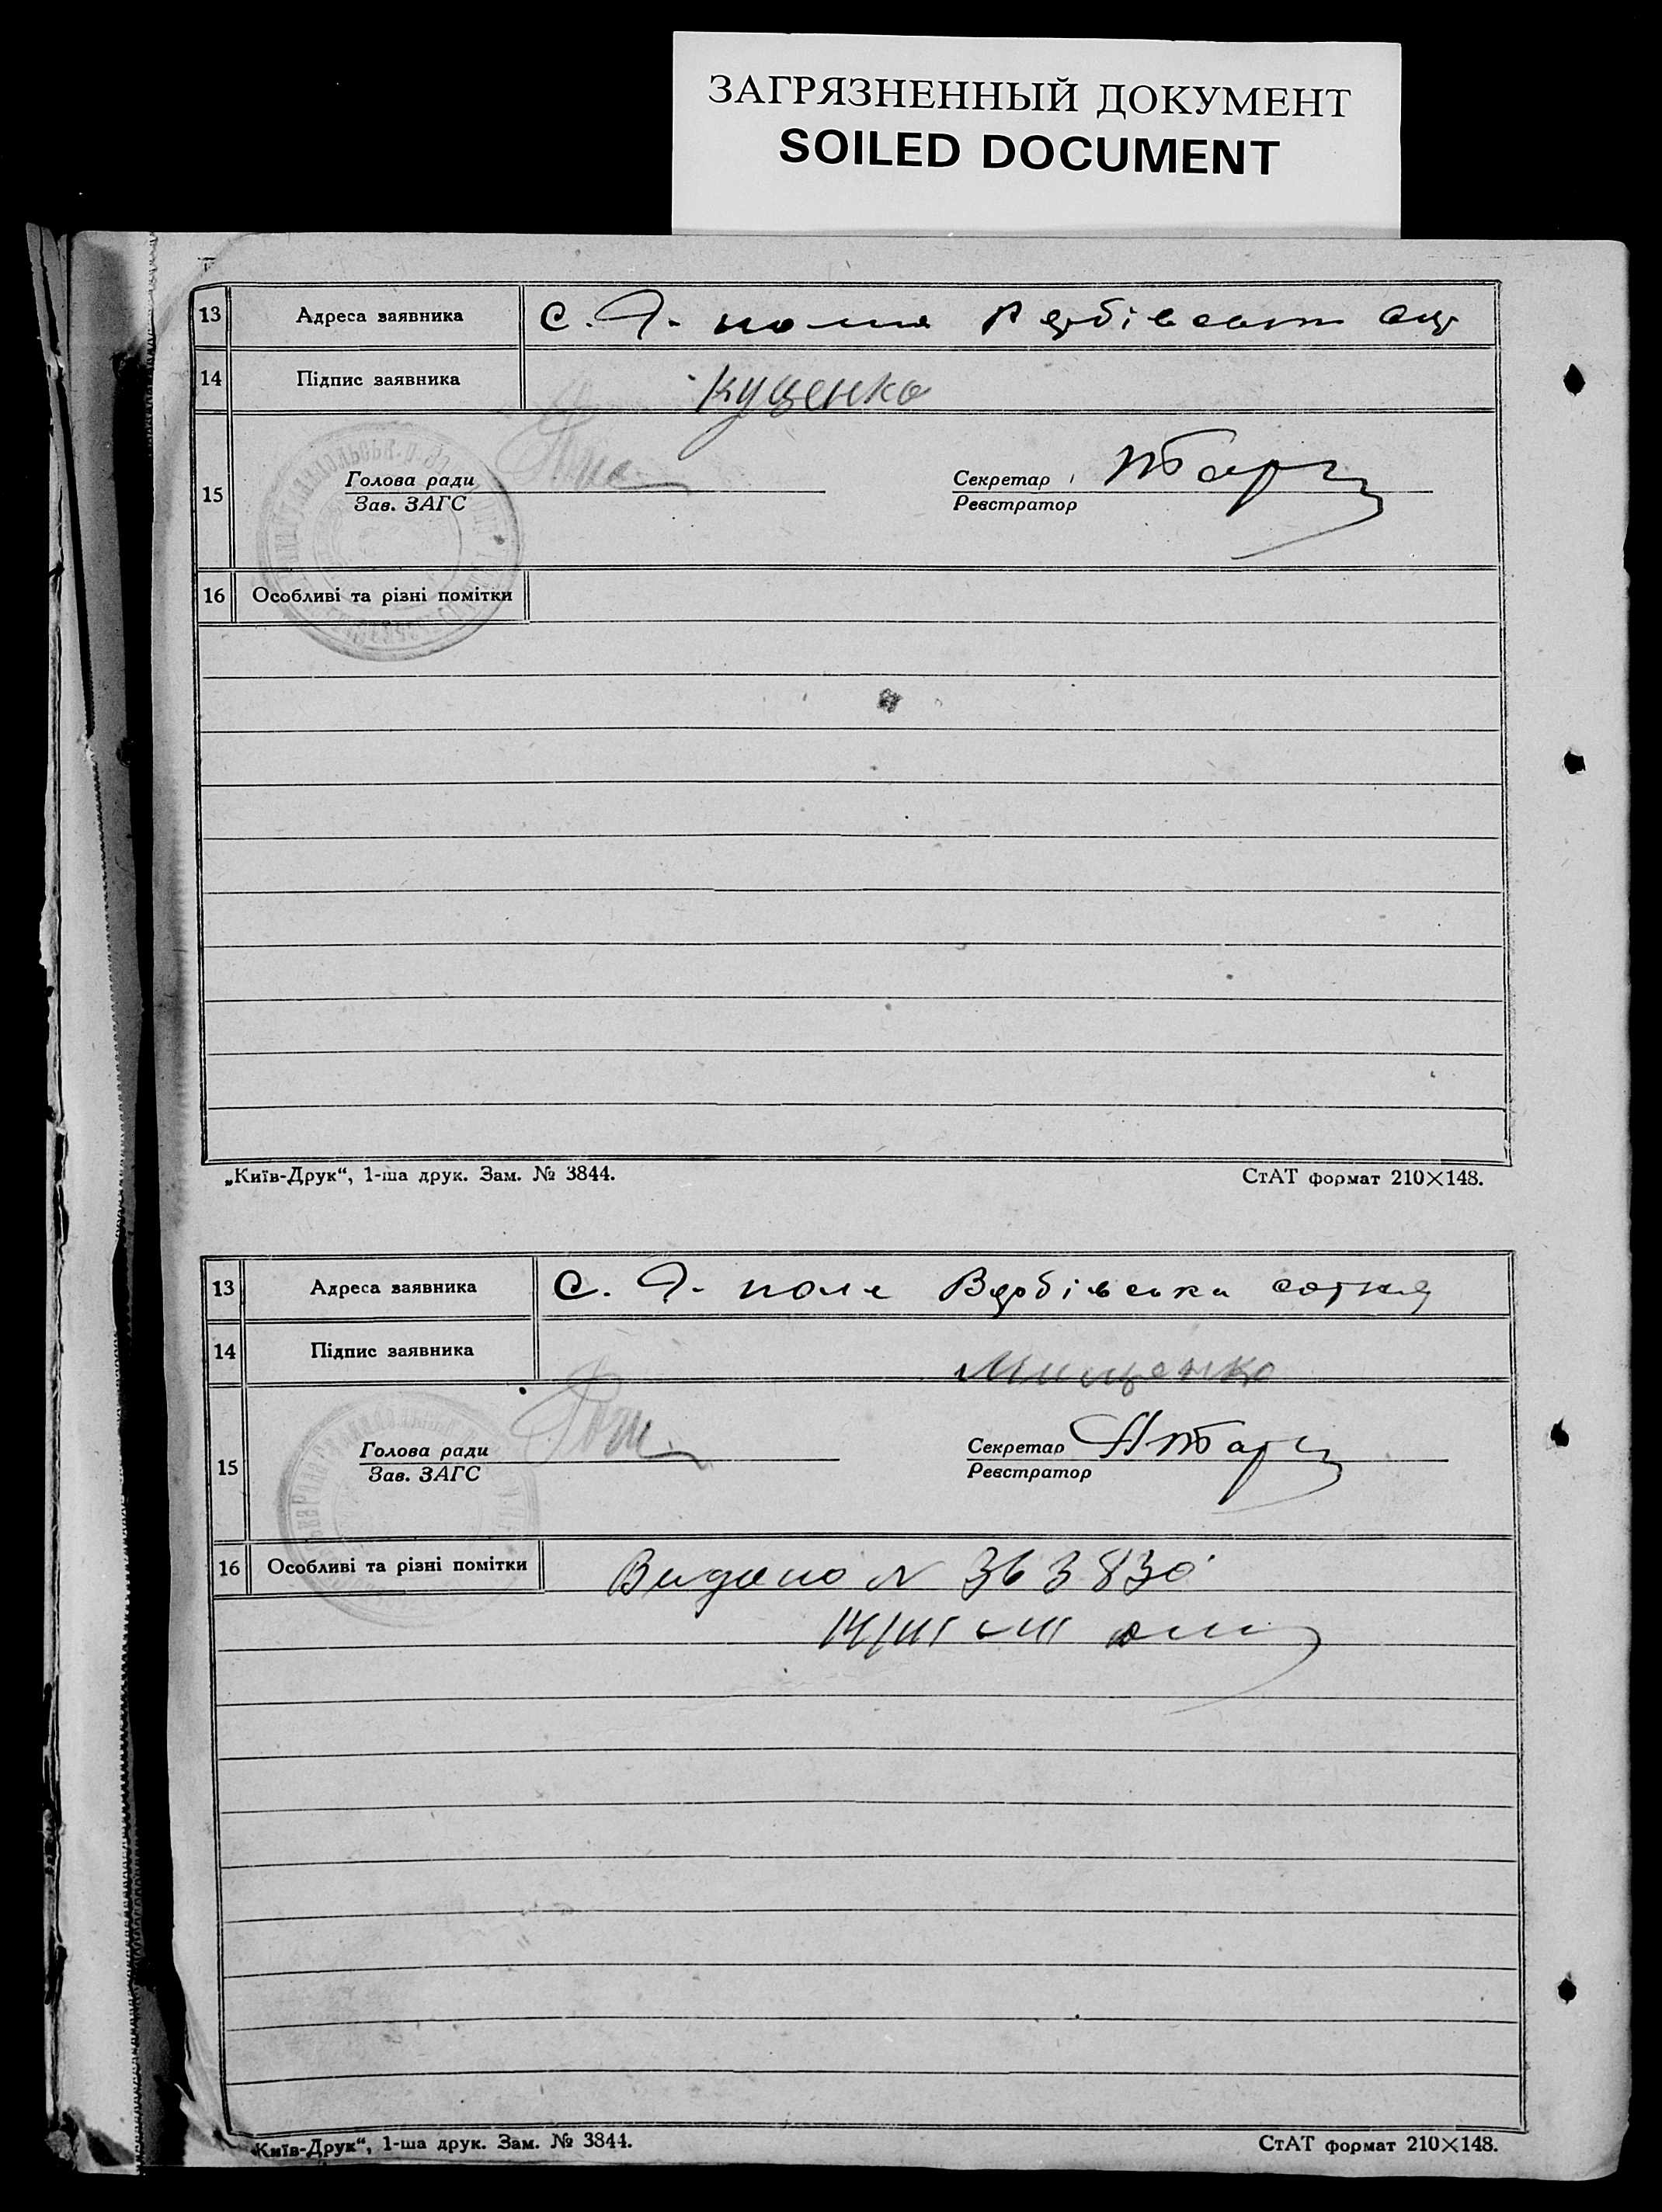 ЗАГРЯЗНЕННЫЙ ДОКУМЕНТ
SOILED DOCUMENT
13 Адреса заявника С. Я. поле Вербівська
14 Підпис заявника Куценко
15 Голова ради Секретар
Зав. ЗАГС Реєстратор
16 Особливі та різні помітки
„Київ-Друк“, 1-ша друк. Зам. № 3844. СтАТ формат 210×148.
13 Адреса заявника С. Я. поле Вербівська сотня
14 Підпис заявника Мищенко
15 Голова ради Секретар
Зав. ЗАГС Реєстратор
16 Особливі та різні помітки Видано N 363830
14/III
„Київ-Друк“, 1-ша друк. Зам. № 3844. СтАТ формат 210×148.